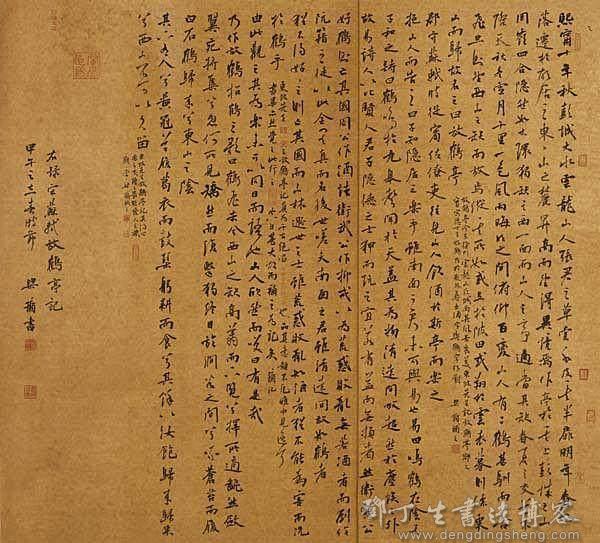 熙寧十年秋彭城大水雲龍山人張君之草堂水及其半扉明年春水
落遷於故居之東東山之麓升高而望得異境焉作亭於其上彭城之山
岡嶺四合隱然如大環獨缺其西一面而山人之亭適當其缺春夏之交草木
際天秋冬雪月千里一色風雨晦明之間俯仰百變山人有二鶴甚馴而善
飛旦則望西山之缺而放焉縱其所如或立於陂田或翔於雲表暮則傃東
山而歸故名之曰放鶴亭
郡守蘇軾時從賓佐僚吏往見山人飲酒於斯亭而樂之
挹山人而告之曰子知隱居之樂乎雖南面之君未可與易也易曰鳴鶴在陰其
子和之詩曰鶴鳴於九皋聲聞於天蓋其為物清遠閑放超然於塵埃之外
故易詩人以比賢人君子隱德之士狎而玩之宜若有益而無損者然衛懿公
好鶴則亡其國周公作酒誥衛武公作抑戒以為荒惑敗亂無若酒者而劉伶
阮籍之徒以此全其真而名後世嗟夫南面之君雖清遠閑放如鶴者
猶不得好好之則亡其國而山林遯世之士雖荒惑敗亂如酒者猶不能為害而況
於鶴乎
由此觀之其為樂未可以同日而語也山人欣然而笑曰有是哉
乃作放鶴招鶴之歌曰鶴飛去兮西山之缺高翔而下覽兮擇所適翻然斂
翼宛將集兮忽何所見矯然而復擊獨終日於澗谷之間兮啄蒼苔而履
白石鶴歸來兮東山之陰
其下有人兮黃冠草屨葛衣而鼓琴躬耕而食兮其餘以汝飽歸來歸來
兮西山不可以久留
右錄宋蘇軾放鶴亭記
甲午之立春時節
鄧丁生書法博客
www.dengdingsheng.com